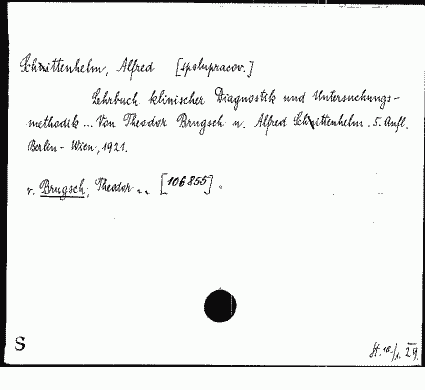 Schittenhelm, Alfred [spolupracov.]
Lehrbuch klinischer Diagnostik und Untersuchungs-
methodik ... Von Theodor Brugsch u. Alfred Schittenhelm. 5. Aufl.
Berlin - Wien, 1921.
v. Brugsch, Theodor .. [106855].
S
H. 18/1. 29.